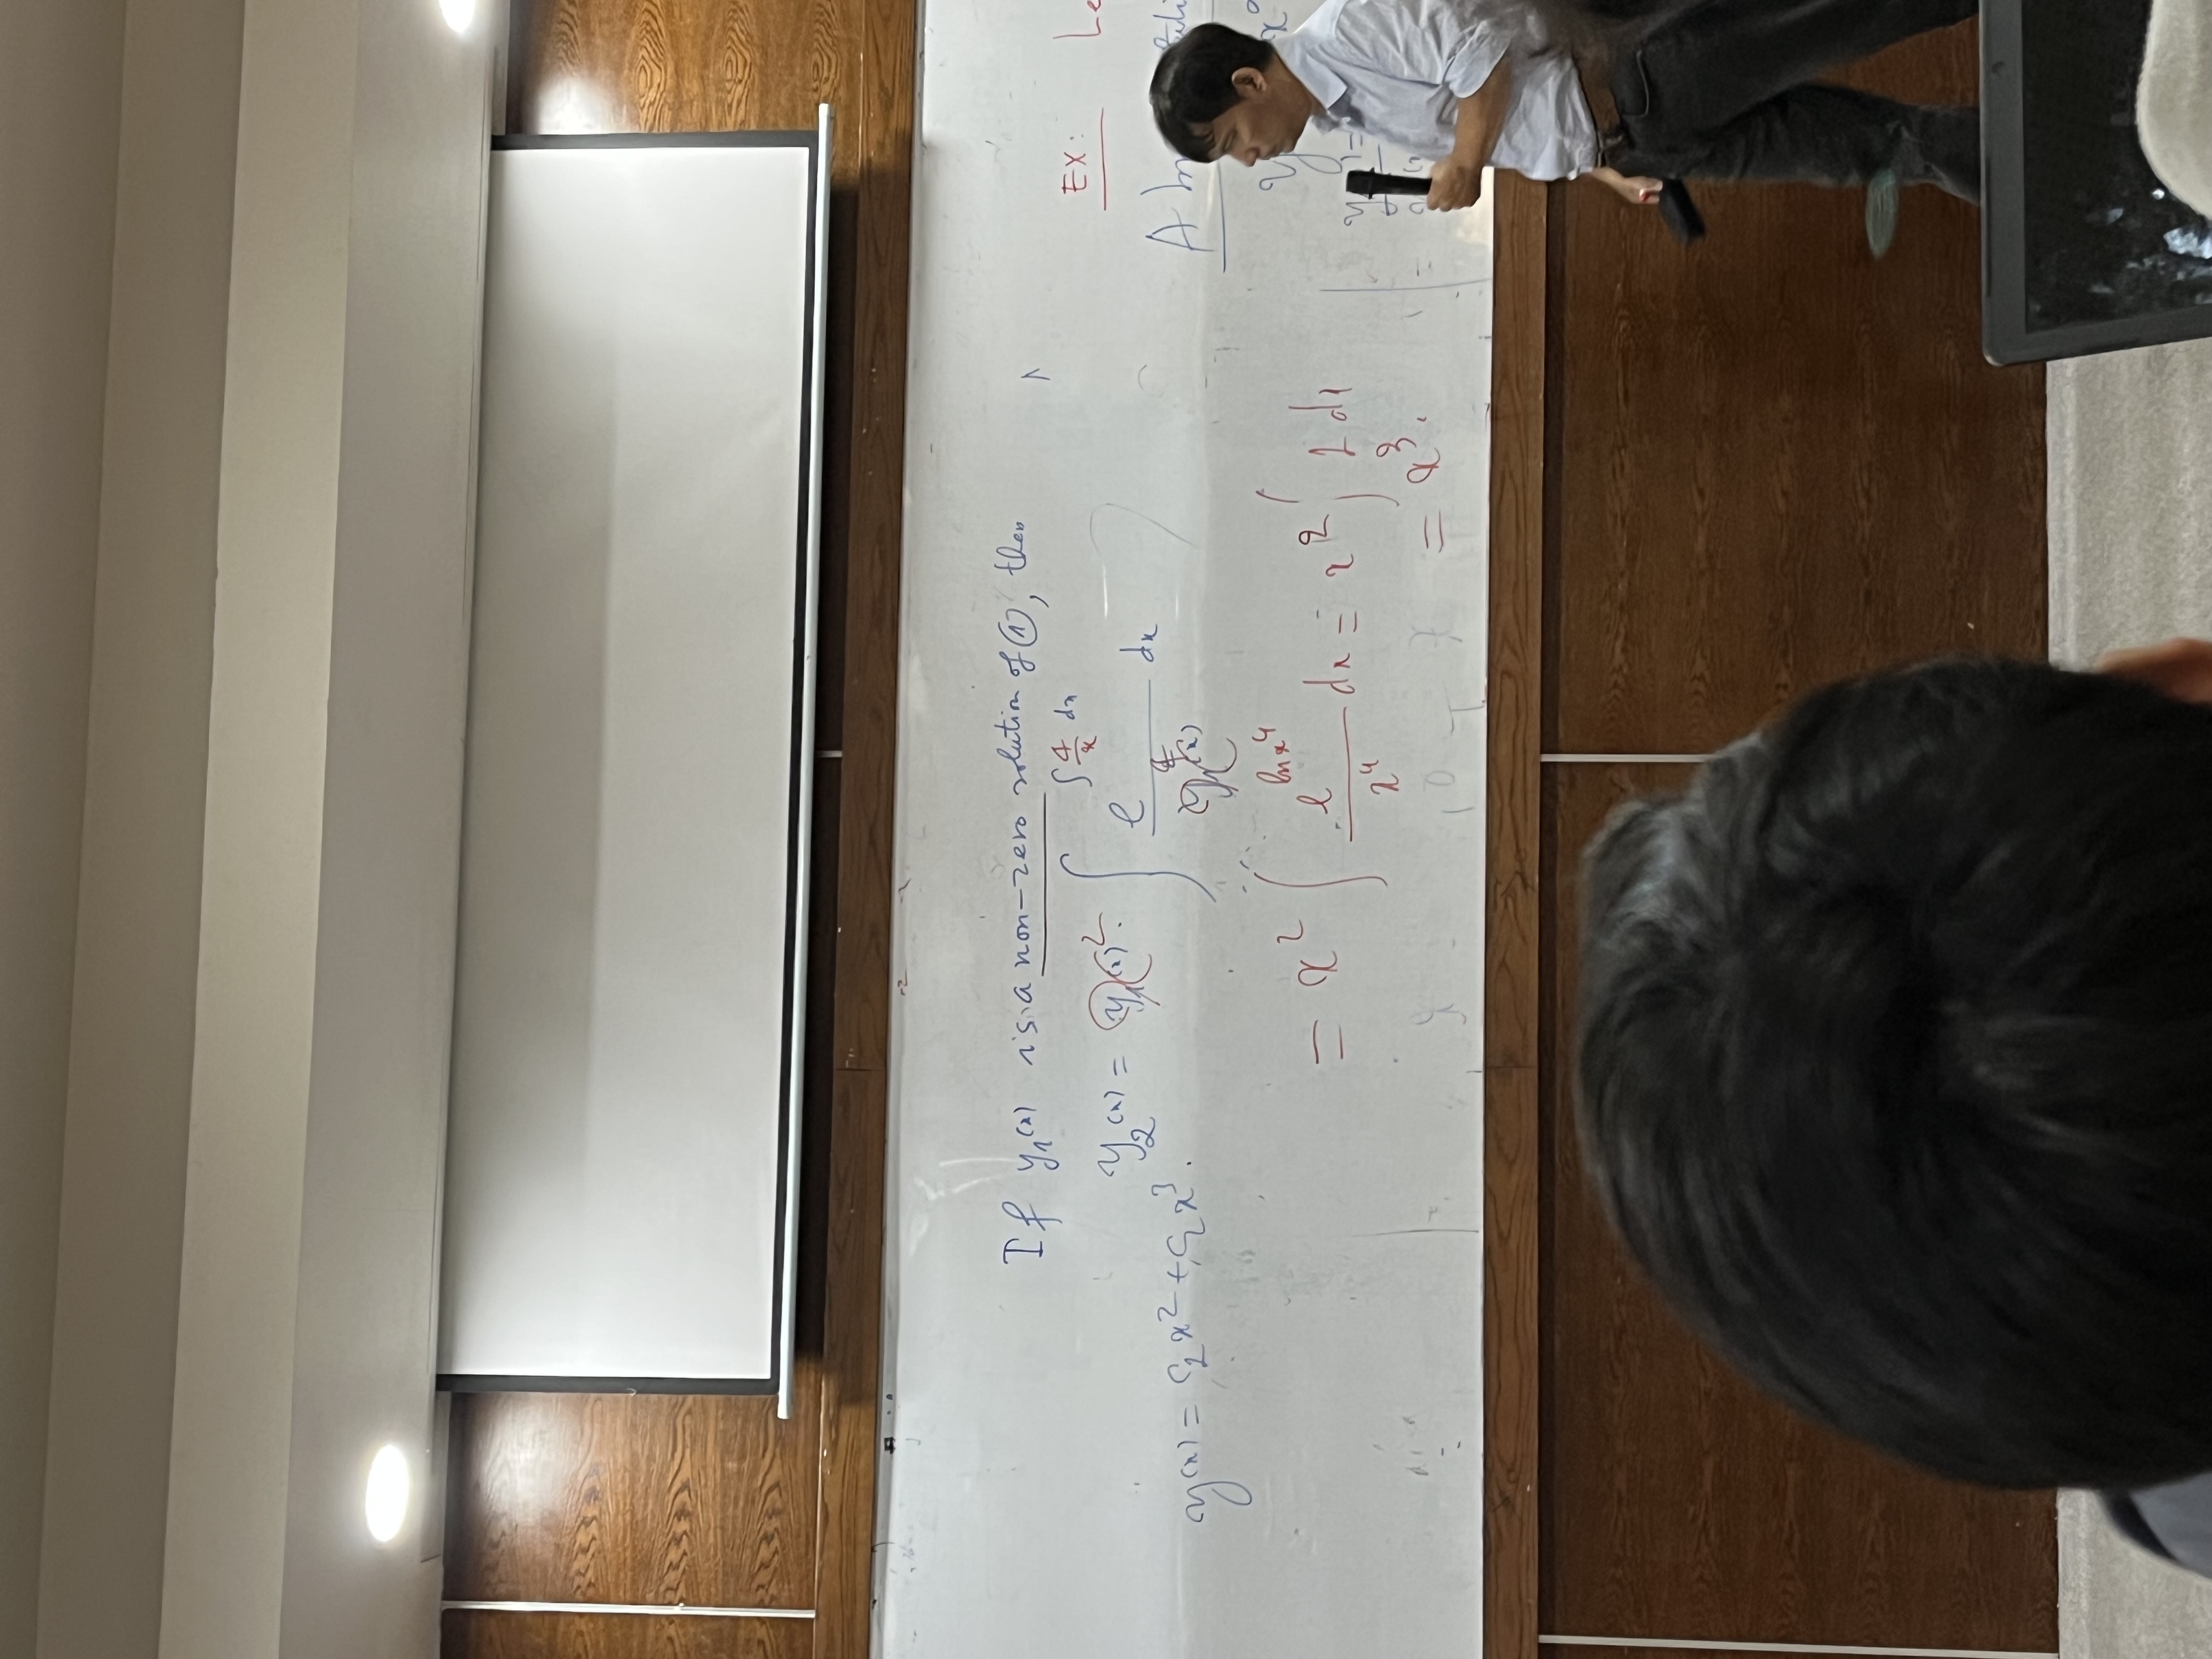 If y₁(x) is a non-zero solution of ①, then
y₂(x) = y₁(x)² · ∫ e^(∫ 4/x dx) / y₁⁴(x) dx
y(x) = c₂x² + c₂x³.
= x² ∫ e^(ln x⁴) / x⁴ dx = x² ∫ 1 dx
= x³.
EX: Le
A
y